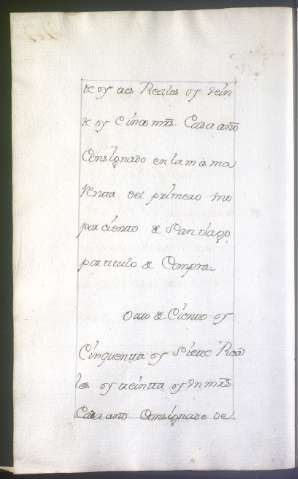 tos y dos Reales y Vein
te y Cinco mrs. Cada año
Consignado en la misma
Renta del primero uno
por ciento de Santiago
por titulo de Compra

Otro de Ciento y
Cinquenta y Siete Rea
les y treinta y Un mrs
Cada año Consignado de